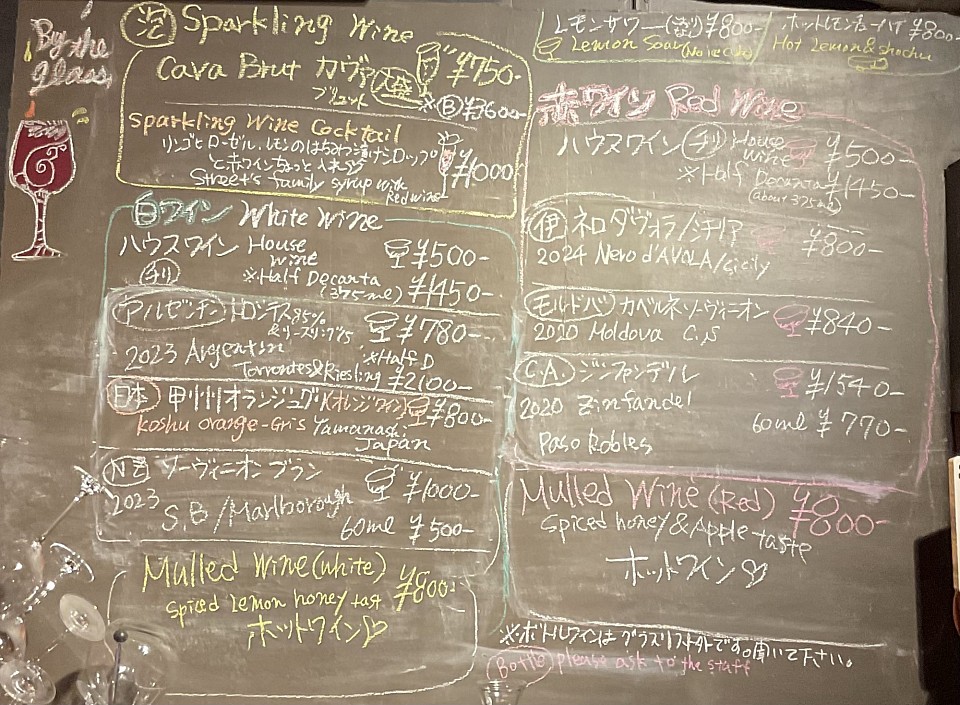 By the
glass
泡 Sparkling Wine
Cava Brut カヴァ ¥750-
ブリュット
※Ⓑ¥3600-
Sparkling Wine Cocktail
リンゴとローゼル、レモンのはちみつ漬けシロップ
と赤ワインちょっと入れ ¥1000
Street's family syrup with
Red wine
白ワイン White Wine
ハウスワイン House
Wine ¥500-
チリ ※Half Decanta
(375ml) ¥1450-
アルゼンチン トロンテス85%
&リースリング15 ¥780-
2023 Argentin ※Half D
Torrontes&Riesling ¥2100-
日本 甲州オランジュグリ(オレンジワイン) ¥800-
Koshu orange-Gris Yamanashi
Japan
NZ ソーヴィニオン ブラン ¥1000-
2023 S.B/Marlborough
60ml ¥500-
Mulled Wine(white) ¥800-
Spiced Lemon honey tast
ホットワイン♡
レモンサワー ¥800-
Lemon Soar
ホットレモンチューハイ ¥800-
Hot Lemon&shochu
赤ワイン Red Wine
ハウスワイン チリ House
Wine ¥500-
※Half Decanta ¥1450-
(about 375ml)
伊 ネロ ダヴォラ/シチリア ¥800-
2024 Nero d'AVOLA/Sicily
モルドバ カベルネ・ソーヴィニオン ¥840-
2020 Moldova C.S
C.A. ジンファンデル ¥1540-
2020 Zinfandel 60ml ¥770-
Paso Robles
Mulled Wine(Red) ¥800-
Spiced honey & Apple taste
ホットワイン♡
※ボトルワインはグラスリスト外です。聞いて下さい。
Bottle, please ask to the staff